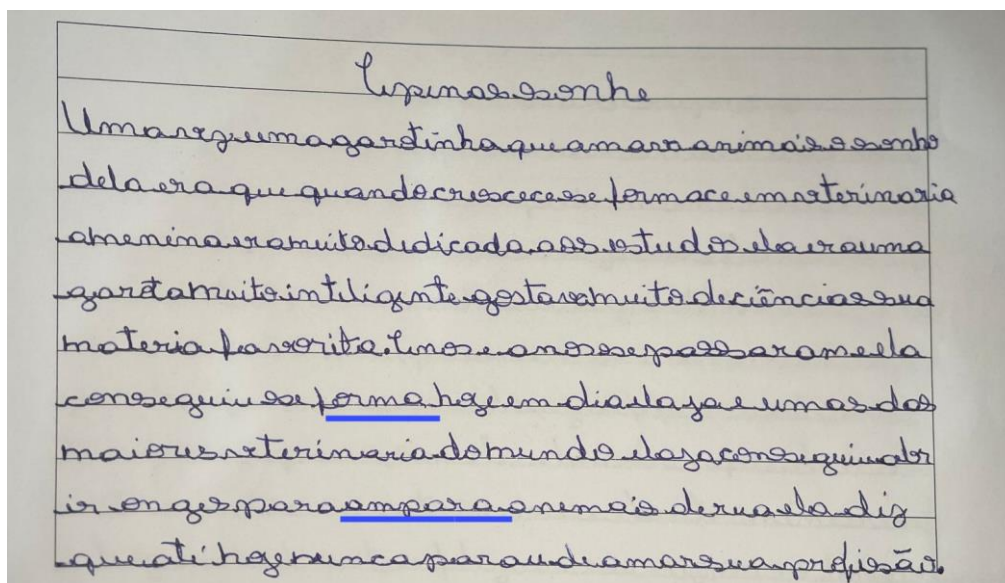 Apenas sonhe
Uma vez uma garotinha que amava animais o sonho
dela era que quando crescece se formace em veterinaria
a menina era muito dedicada aos estudos ela era uma
garota muito inteligente gostava muito de ciências sua
materia favorita. Anos e anos se passaram e ela
conseguiu se forma hoje em dia ela ja e umas das
maiores veterinaria do mundo ela ja conseguiu abr
ir onges para ampara anemais de rua ela diz
que até hoje nunca parou de amar sua profissão.